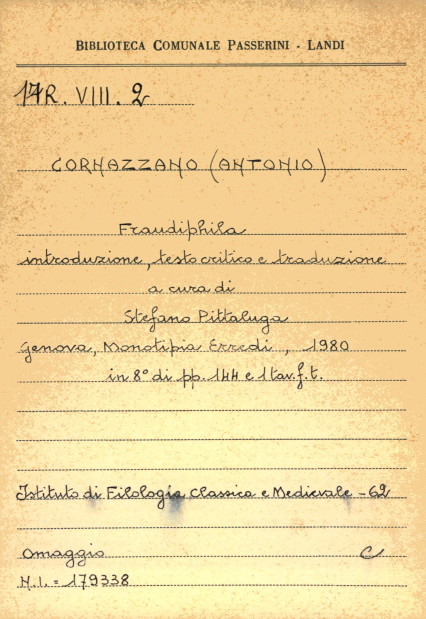 BIBLIOTECA COMUNALE PASSERINI - LANDI
17R. VIII. 2
CORNAZZANO (ANTONIO)
Fraudiphila
introduzione, testo critico e traduzione
a cura di
Stefano Pittaluga
Genova, Monotipia Erredi, 1980
in 8° di pp. 144 e 1 tav. f. t.
Istituto di Filologia Classica e Medievale - 62
Omaggio C
N.I. = 179338